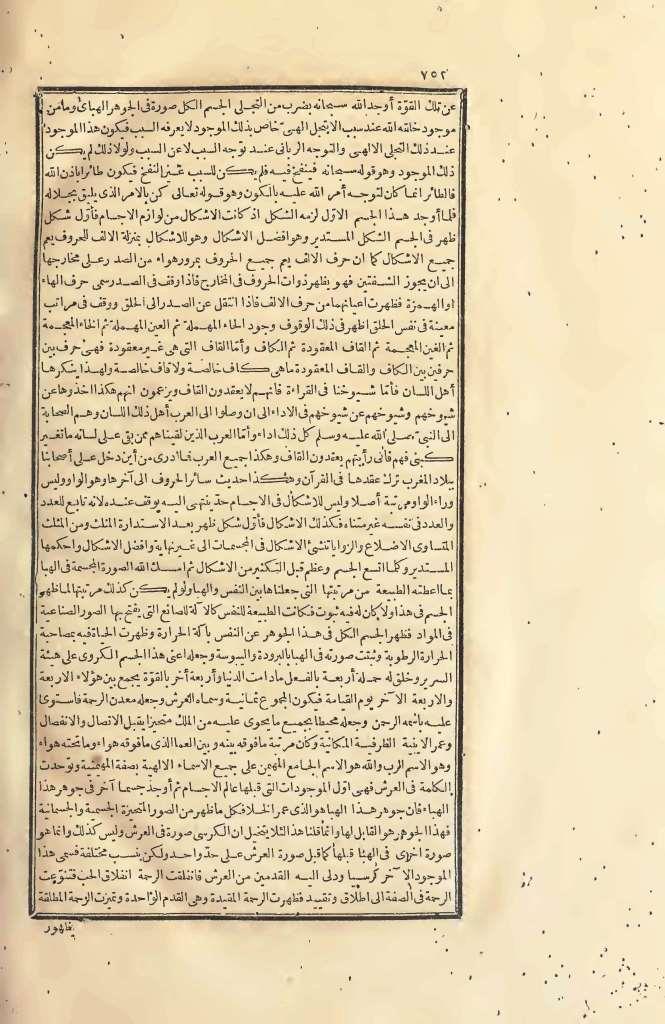 ٧٥٢
عن تلك القوّة أوجد الله سبحانه بضرب من التجلى الجسم الكل صورة فى الجوهر الهبائى وما من
موجود خلقه الله عند سبب الا بتجل الهىّ خاص بذلك الموجود لا يعرفه السبب فيكون هذا الموجود
عند ذلك التجلى الالهى والتوجه الربانى عند توجه السبب لا عن السبب ولولا ذلك لم يكن
ذلك الموجود وهو قوله سبحانه فينفخ فيه فلم يكن للسبب غير النفخ فيكون طائرا باذن الله
فالطائر انما كان لتوجه أمر الله عليه بالكون وهو قوله تعالى كن بالامر الذى يليق بجلاله
فلما أوجد هذا الجسم الاوّل لزمه الشكل اذ كانت الاشكال من لوازم الاجسام فأوّل شكل
ظهر فى الجسم الشكل المستدير وهو افضل الاشكال وهو للاشكال بمنزلة الالف للحروف يعم
جميع الاشكال كما ان حرف الالف يعم جميع الحروف بمروره هواء من الصدر على مخارجها
الى ان يجوز الشفتين فهو يظهر ذوات الحروف فى المخارج فاذا وقف فى الصدر سمى حرف الهاء
والهمزة فظهرت اعيانهما من حرف الالف فاذا انتقل عن الصدر الى الحلق ووقف فى مراتب
معينة فى نفس الحلق اظهر فى ذلك الوقوف وجود الحاء المهملة ثم العين المهملة ثم الخاء المعجمة
ثم الغين المعجمة ثم القاف المعقودة ثم الكاف وأمّا القاف التى هى غير معقودة فهى حرف بين
حرفين بين الكاف والقاف المعقودة ما هى كاف خالصة ولا قاف خالصة ولهذا ينكرها
أهل اللسان فأمّا شيوخنا فى القراءة فانهم لا يعقدون القاف ويزعمون انهم هكذا اخذوها عن
شيوخهم وشيوخهم عن شيوخهم فى الاداء الى ان وصلوا الى العرب أهل ذلك اللسان وهم الصحابة
الى النبىّ صلى الله عليه وسلم كل ذلك اداء وأمّا العرب الذين لقيناهم ممن بقى على لسانه ما تغير
كبنى فهم فانى رأيتهم يعقدون القاف وهكذا جميع العرب فما ادرى من أين دخل على أصحابنا
ببلاد المغرب ترك عقدها فى القرآن وهكذا حديث سائر الحروف الى آخرها وهو الواو وليس
وراء الواو مرتبة أصلا وليس للاشكال فى الاجسام حدّ ينتهى اليه يوقف عنده لانه تابع للعدد
والعدد فى نفسه غير متناه فكذلك الاشكال فأوّل شكل ظهر بعد الاستدارة المثلث ومن المثلث
المتساوى الاضلاع والزوايا تنشئ الاشكال فى المجسمات الى غير نهاية وافضل الاشكال واحكمها
المستدير وكلما اتسع الجسم وعظم قبل التكثير من الاشكال ثم امسك الله الصورة الجسمة فى الهبا
بما اعطته الطبيعة من مرتبتها التى جعلناها بين النفس والهبا ولو لم يكن كذلك مرتبتها لما ظهر
الجسم فى هذا ولا كان له فيه ثبوت فكانت الطبيعة للنفس كالآلة للصانع التى يفتح بها الصور الصناعية
فى المواد فظهر الجسم الكل فى هذا الجوهر عن النفس بآلة الحرارة وظهرت الحياة فيه بمصاحبة
الحرارة الرطوبة وثبتت صورته فى الهبا بالبرودة واليبوسة وجعله اعنى هذا الجسم الكروى على هيئة
السرير وخلق له حملة أربعة بالفعل ما دامت الدنيا وأربعة أخر بالقوّة يجمع بين هؤلاء الاربعة
والاربعة الاخر يوم القيامة فيكون المجموع ثمانية وسماه العرش وجعله معدن الرحمة فاستوى
عليه باسمه الرحمن وجعله محيطا بجميع ما يحوى عليه من الملك متحيزا يقبل الاتصال والانفصال
وعمر الاينية الظرفية المكانية وكان مرتبة ما فوقه بينه وبين العما الذى ما فوقه هواء وما تحته هواء
وهو الاسم الرب والله هو الاسم الجامع المهيمن على جميع الاسماء الالهية بصفة المهيمنية وتوحدت
الكلمة فى العرش فهى اوّل الموجودات التى قبلها عالم الاجسام ثم أوجد جسما آخر فى جوهر هذا
الهباء فان جوهر هذا الهبا هو الذى عمر الخلا فكل ما ظهر من الصور المتحيزة الجسمية والجسمانية
فهذا الجوهر هو القابل لها وانما قلنا هذا لئلا يتخيل ان الكرسى صورة فى العرش وليس كذلك وانما هو
صورة اخرى فى الهبا قبلها كما قبل صورة العرش على حدّ واحد ولكن بنسب مختلفة فسمى هذا
الموجود الآخر كرسيا ودلى اليه القدمين من العرش فانفلقت الرحمة انفلاق الحب فتنوّعت
الرحمة فى الصفة الى اطلاق وتقييد فظهرت الرحمة المقيدة وهى القدم الواحدة وتميزت الرحمة المطلقة
بظهور